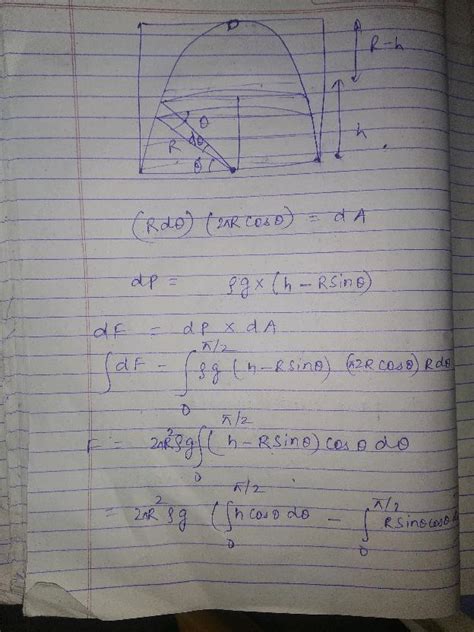 R-h
θ
h
R
dθ
θ
(Rdθ) (2πR cosθ) = dA
dP = ρg × (h - R sinθ)
dF = dP × dA
∫dF - ∫₀^{π/2} ρg (h - R sinθ) (π2R cosθ) R dθ
F = 2πR²ρg ∫₀^{π/2} (h - R sinθ) cosθ dθ
= 2πR²ρg (∫₀^{π/2} h cosθ dθ - ∫₀^{π/2} R sinθ cosθ